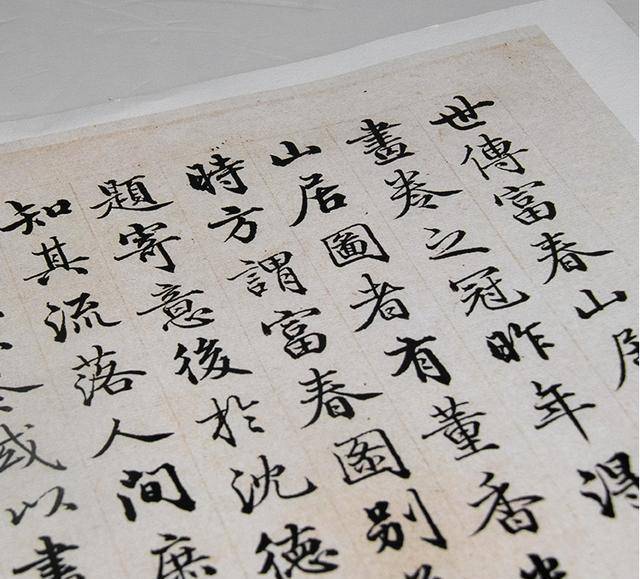 世傳富春山居
畫卷之冠昨年得
山居圖者有董香
時方謂富春圖別
題寄意後於沈德
知其流落人間庶
或以書